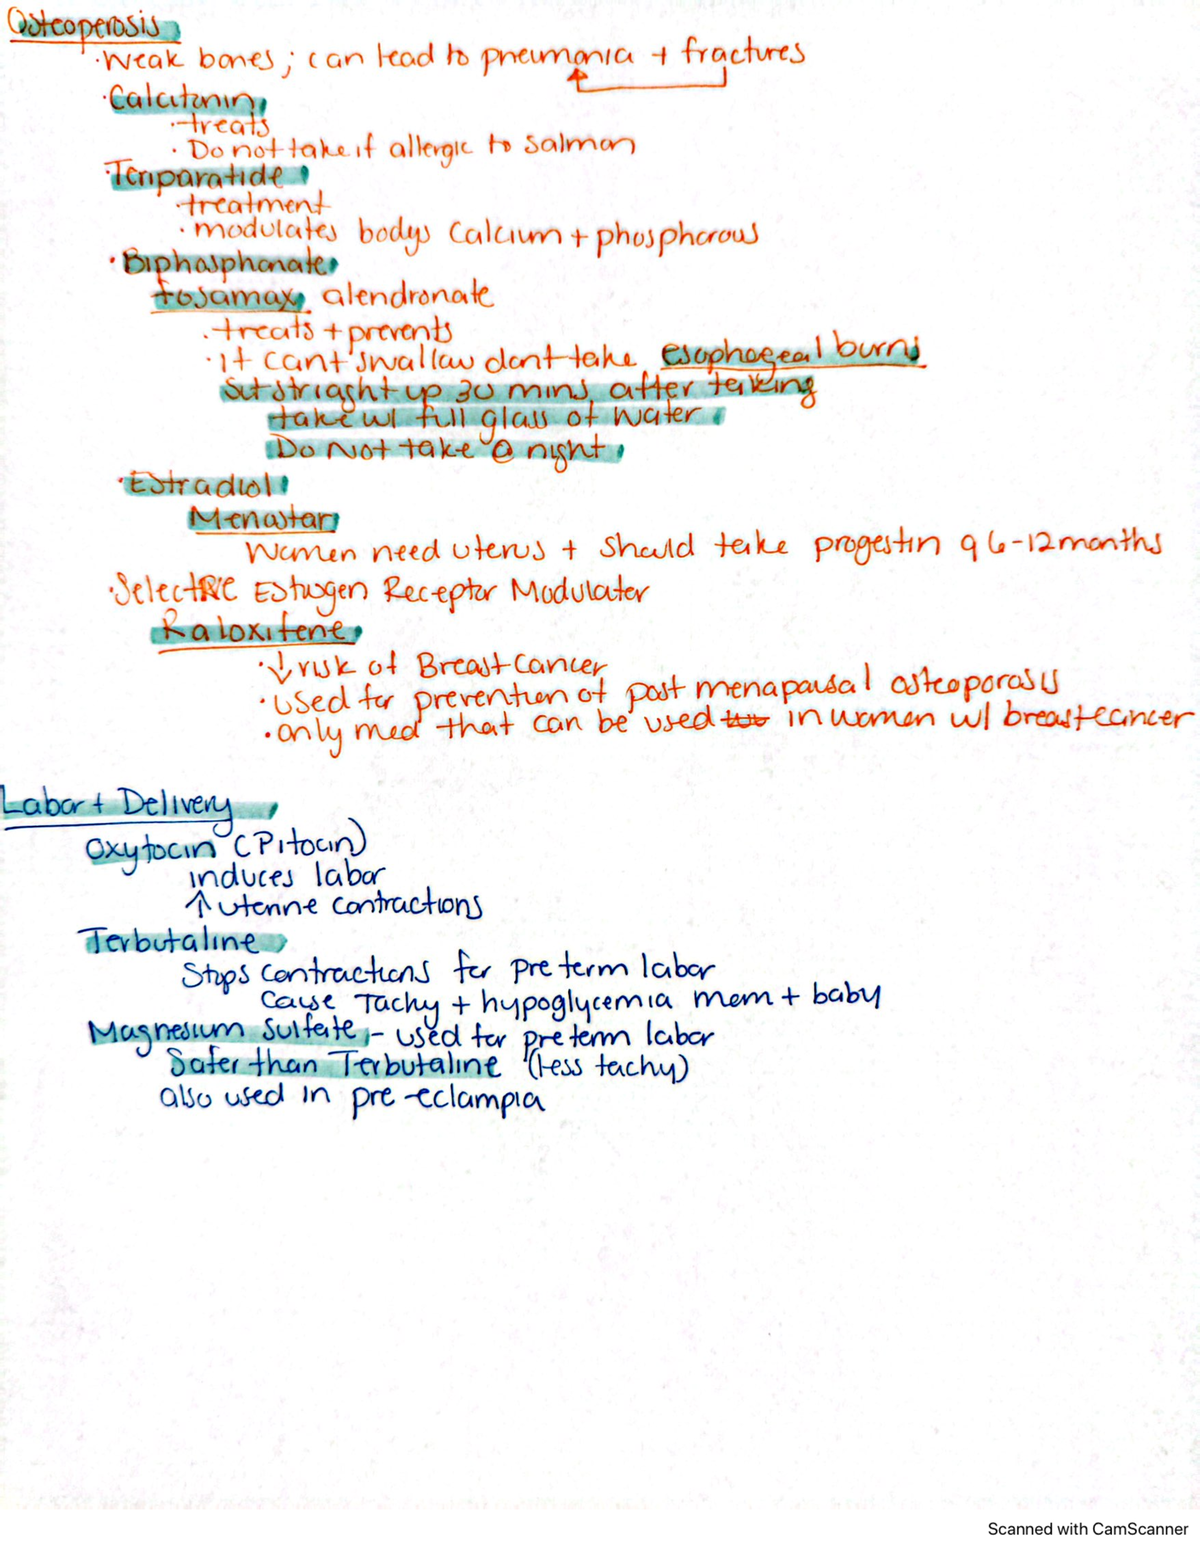 Osteoperosis
· Weak bones; can lead to pneumonia + fractures
· Calcitonin
· treats
· Do not take if allergic to salmon
· Teriparatide
· treatment
· modulates bodys Calcium + phosphorous
· Biphosphonate
fosamax, alendronate
· treats + prevents
· if cant swallow dont take esophogeal burns
Sit striaght up 30 mins after taking
take w/ full glass of water
Do Not take @ night
· Estradiol
Menostar
Women need uterus + should take progestin q 6-12 months
· Selective Estrogen Receptor Modulater
Raloxifene
· ↓ risk of Breast Cancer
· used for prevention of post menapausal osteoporosis
· only med that can be used in women w/ breast cancer
Labor + Delivery
Oxytocin (Pitocin)
induces labor
↑ uterine contractions
Terbutaline
Stops contractions for pre term labor
Cause Tachy + hypoglycemia mom + baby
Magnesium Sulfate - used for pre term labor
Safer than Terbutaline (less tachy)
also used in pre-eclampia
Scanned with CamScanner